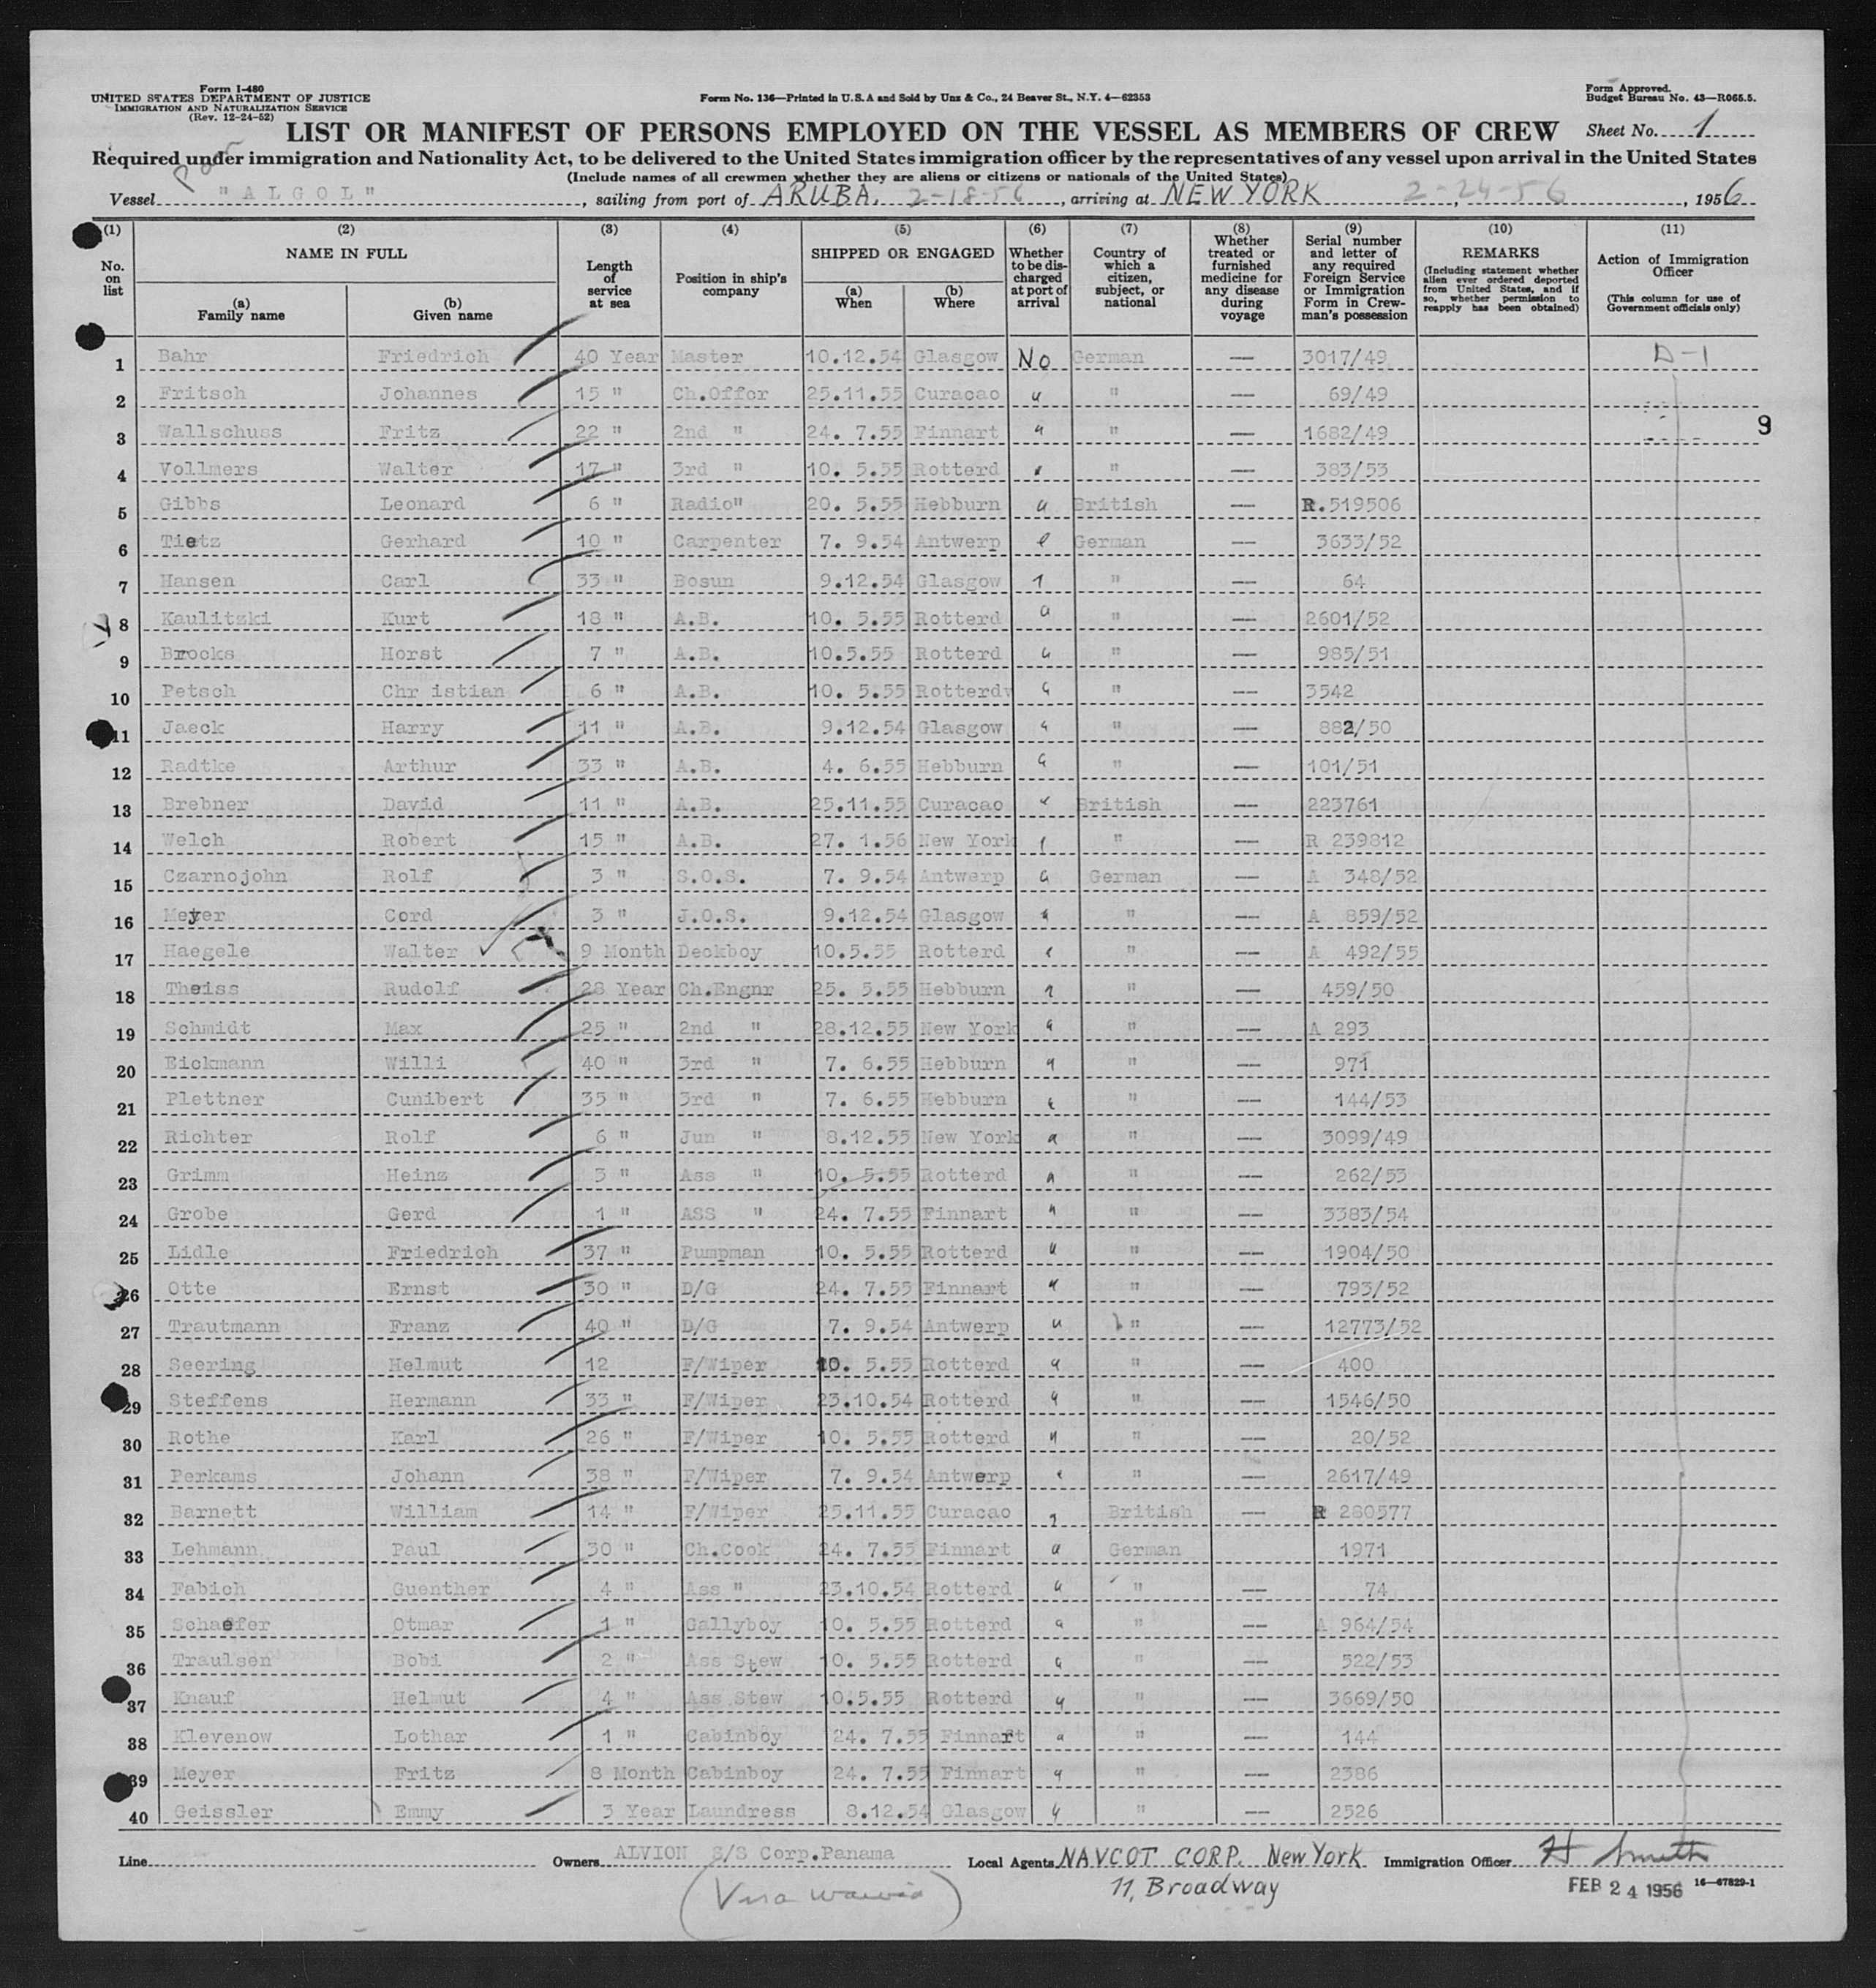 Form I-480
UNITED STATES DEPARTMENT OF JUSTICE
IMMIGRATION AND NATURALIZATION SERVICE
(Rev. 12-24-52)
Form No. 136—Printed in U.S.A and Sold by Unz & Co., 24 Beaver St., N.Y. 4—62353
Form Approved.
Budget Bureau No. 43—R065.5.
LIST OR MANIFEST OF PERSONS EMPLOYED ON THE VESSEL AS MEMBERS OF CREW Sheet No. 1
Required under immigration and Nationality Act, to be delivered to the United States immigration officer by the representatives of any vessel upon arrival in the United States
(Include names of all crewmen whether they are aliens or citizens or nationals of the United States)
Vessel "ALGOL", sailing from port of ARUBA. 2-18-56, arriving at NEW YORK 2-24-56, 1956
(1) (2) (3) (4) (5) (6) (7) (8) (9) (10) (11)
No. on list
NAME IN FULL
(a) Family name
(b) Given name
Length of service at sea
Position in ship's company
SHIPPED OR ENGAGED
(a) When
(b) Where
Whether to be discharged at port of arrival
Country of which a citizen, subject, or national
Whether treated or furnished medicine for any disease during voyage
Serial number and letter of any required Foreign Service or Immigration Form in Crewman's possession
REMARKS
(Including statement whether alien ever ordered deported from United States, and if so, whether permission to reapply has been obtained)
Action of Immigration Officer
(This column for use of Government officials only)
1 Bahr Friedrich 40 Year Master 10.12.54 Glasgow No German — 3017/49 D-1
2 Fritsch Johannes 15 " Ch.Offcr 25.11.55 Curacao " " — 69/49
3 Wallschuss Fritz 22 " 2nd " 24. 7.55 Finnart " " — 1682/49
9
4 Vollmers Walter 17 " 3rd " 10. 5.55 Rotterd " " — 383/53
5 Gibbs Leonard 6 " Radio" 20. 5.55 Hebburn " British — R.519506
6 Tietz Gerhard 10 " Carpenter 7. 9.54 Antwerp " German — 3633/52
7 Hansen Carl 33 " Bosun 9.12.54 Glasgow " " — 64
8 Kaulitzki Kurt 18 " A.B. 10. 5.55 Rotterd " " — 2601/52
9 Brocks Horst 7 " A.B. 10.5.55 Rotterd " " — 985/51
10 Petsch Chr istian 6 " A.B. 10. 5.55 Rotterd " " — 3542
11 Jaeck Harry 11 " A.B. 9.12.54 Glasgow " " — 882/50
12 Radtke Arthur 33 " A.B. 4. 6.55 Hebburn " " — 101/51
13 Brebner David 11 " A.B. 25.11.55 Curacao " British — 223761
14 Welch Robert 15 " A.B. 27. 1.56 New York " " — R 239812
15 Czarnojohn Rolf 3 " S.O.S. 7. 9.54 Antwerp " German — A 348/52
16 Meyer Cord 3 " J.O.S. 9.12.54 Glasgow " " — A 859/52
17 Haegele Walter 9 Month Deckboy 10.5.55 Rotterd " " — A 492/55
18 Theiss Rudolf 28 Year Ch.Engnr 25. 5.55 Hebburn " " — 459/50
19 Schmidt Max 25 " 2nd " 28.12.55 New York " " — A 293
20 Eickmann Willi 40 " 3rd " 7. 6.55 Hebburn " " — 971
21 Plettner Cunibert 35 " 3rd " 7. 6.55 Hebburn " " — 144/53
22 Richter Rolf 6 " Jun " 8.12.55 New York " " — 3099/49
23 Grimm Heinz 3 " Ass " 10. 5.55 Rotterd " " — 262/53
24 Grobe Gerd 1 " ASS " 24. 7.55 Finnart " " — 3383/54
25 Lidle Friedrich 37 " Pumpman 10. 5.55 Rotterd " " — 1904/50
26 Otte Ernst 30 " D/G 24. 7.55 Finnart " " — 793/52
27 Trautmann Franz 40 " D/G 7. 9.54 Antwerp " " — 12773/52
28 Seering Helmut 12 F/Wiper 10. 5.55 Rotterd " " — 400
29 Steffens Hermann 33 " F/Wiper 23.10.54 Rotterd " " — 1546/50
30 Rothe Karl 26 " F/Wiper 10. 5.55 Rotterd " " — 20/52
31 Perkams Johann 38 " F/Wiper 7. 9.54 Antwerp " " — 2617/49
32 Barnett William 14 " F/Wiper 25.11.55 Curacao " British — R 280577
33 Lehmann Paul 30 " Ch.Cook 24. 7.55 Finnart " German — 1971
34 Fabich Guenther 4 " Ass " 23.10.54 Rotterd " " — 74
35 Schaefer Otmar 1 " Gallyboy 10. 5.55 Rotterd " " — A 964/54
36 Traulsen Bobi 2 " Ass Stew 10. 5.55 Rotterd " " — 522/53
37 Knauf Helmut 4 " Ass Stew 10.5.55 Rotterd " " — 3669/50
38 Klevenow Lothar 1 " Cabinboy 24. 7.55 Finnart " " — 144
39 Meyer Fritz 8 Month Cabinboy 24. 7.55 Finnart " " — 2386
40 Geissler Emmy 3 Year Laundress 8.12.54 Glasgow " " — 2526
Line Owners ALVION S/S Corp.Panama Local Agents NAVCOT CORP. New York Immigration Officer H Smith
11, Broadway
FEB 24 1956 16—67829-1